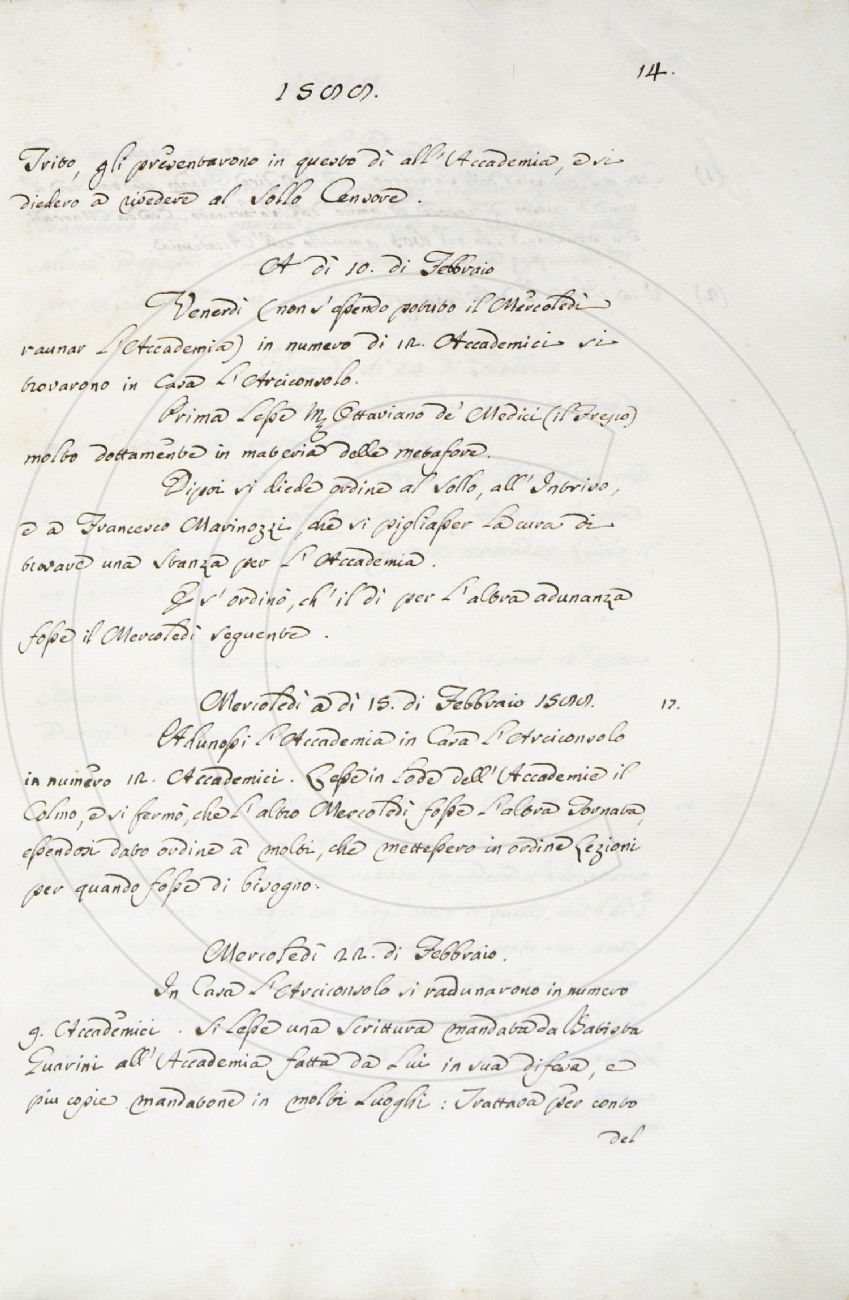 14.
1588.
Trito, gli presentarono in questo dì all'Accademia, e si
diedero a rivedere al Sollo Censore.
A dì 10. di Febbraio
Venerdì (non s'essendo potuto il Mercoledì
raunar l'Accademia) in numero di 12. Accademici si
trovarono in Casa l'Arciconsolo.
Prima Lesse Ottaviano de' Medici (il Fresco)
molto dottamente in materia delle metafore.
Dipoi si diede ordine al Sollo, all'Intriso,
e a Francesco Marinozzi, che si pigliasser la cura di
trovare una stanza per l'Accademia.
E s'ordinò, ch'il dì per l'altra adunanza
fosse il Mercoledì seguente.
Mercoledì a dì 15. di Febbraio 1588. 17.
Adunossi l'Accademia in Casa l'Arciconsolo
in numero 12. Accademici. Lesse in Lode dell'Accademie il
Colmo, e si fermò, che l'altro Mercoledì fosse l'altra Tornata,
essendosi dato ordine a molti, che mettessero in ordine Lezioni
per quando fosse di bisogno.
Mercoledì 22. di Febbraio.
In Casa l'Arciconsolo si radunarono in numero
9. Accademici. Si Lesse una scrittura mandata da Batista
Guarini all'Accademia fatta da Lui in sua difesa, e
più copie mandatone in molti Luoghi: Trattava per conto
del